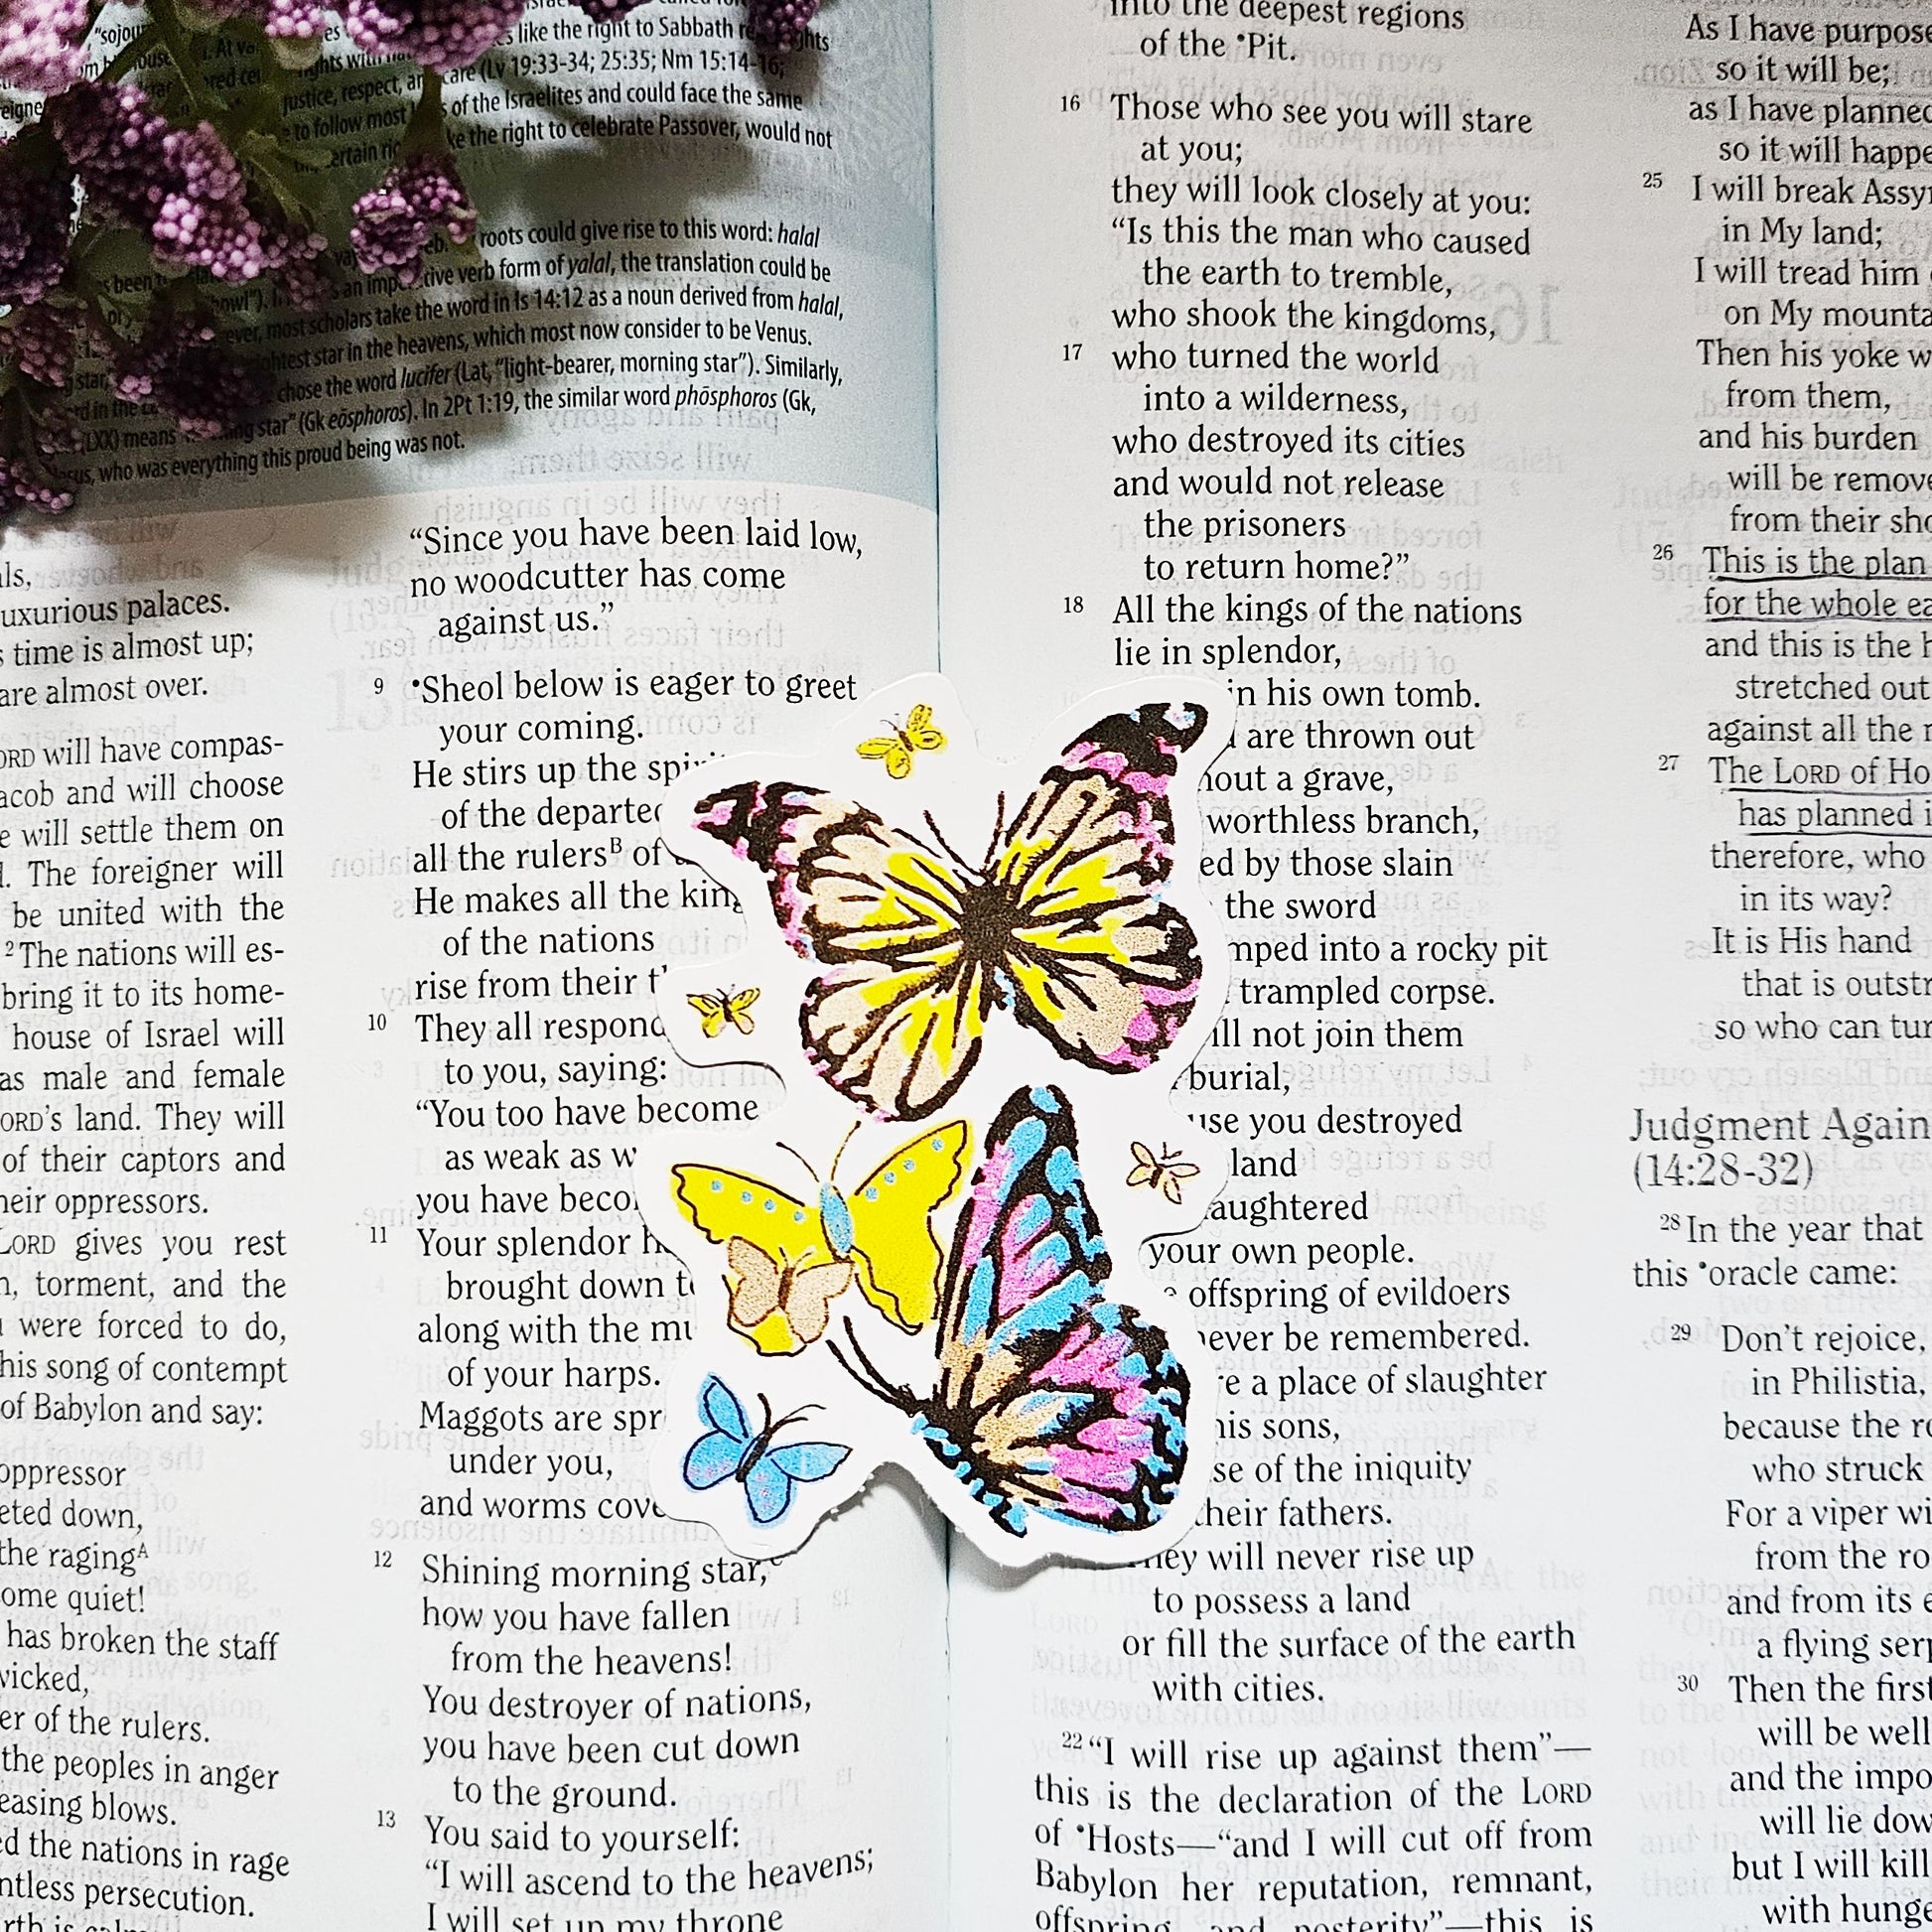 "sojou
like the right to Sabbath
justice, respect, an care (Lv 19:33-34; 25:35; Nm 15:14-16;
to follow most of the Israelites and could face the same
ertain ke the right to celebrate Passover, would not
roots could give rise to this word: halal
tive verb form of yalal, the translation could be
most scholars take the word in Is 14:12 as a noun derived from halal,
ghtest star in the heavens, which most now consider to be Venus.
chose the word lucifer (Lat, "light-bearer, morning star"). Similarly,
star" (Gk eōsphoros). In 2Pt 1:19, the similar word phōsphoros (Gk,
who was everything this proud being was not.
ls,
uxurious palaces.
s time is almost up;
are almost over.
ORD will have compas-
acob and will choose
e will settle them on
l. The foreigner will
be united with the
2 The nations will es-
bring it to its home-
house of Israel will
as male and female
ORD's land. They will
of their captors and
heir oppressors.
LORD gives you rest
n, torment, and the
u were forced to do,
his song of contempt
of Babylon and say:
oppressor
eted down,
the ragingA
ome quiet!
has broken the staff
wicked,
er of the rulers.
the peoples in anger
easing blows.
ed the nations in rage
ntless persecution.
"Since you have been laid low,
no woodcutter has come
against us."
9 •Sheol below is eager to greet
your coming.
He stirs up the spiri
of the departed
all the rulersB of
He makes all the king
of the nations
rise from their t
10 They all respond
to you, saying:
"You too have become
as weak as w
you have beco
11 Your splendor h
brought down to
along with the mu
of your harps.
Maggots are spr
under you,
and worms cove
12 Shining morning star,C
how you have fallen
from the heavens!
You destroyer of nations,
you have been cut down
to the ground.
13 You said to yourself:
"I will ascend to the heavens;
I will set up my throne
into the deepest regions
of the •Pit.
16 Those who see you will stare
at you;
they will look closely at you:
"Is this the man who caused
the earth to tremble,
who shook the kingdoms,
17 who turned the world
into a wilderness,
who destroyed its cities
and would not release
the prisoners
to return home?"
18 All the kings of the nations
lie in splendor,
in his own tomb.
are thrown out
hout a grave,
worthless branch,
ed by those slain
the sword
mped into a rocky pit
trampled corpse.
ill not join them
burial,
use you destroyed
land
aughtered
your own people.
offspring of evildoers
never be remembered.
re a place of slaughter
his sons,
se of the iniquity
their fathers.
They will never rise up
to possess a land
or fill the surface of the earth
with cities.
22 "I will rise up against them"—
this is the declaration of the LORD
of •Hosts—"and I will cut off from
Babylon her reputation, remnant,
offspring, and posterity"—this is
As I have purpose
so it will be;
as I have planned
so it will happe
25 I will break Assy
in My land;
I will tread him
on My mounta
Then his yoke w
from them,
and his burden
will be remove
from their sho
26 This is the plan
for the whole ea
and this is the h
stretched out
against all the n
27 The LORD of Ho
has planned i
therefore, who
in its way?
It is His hand
that is outstr
so who can tur
Judgment Again
(14:28-32)
28 In the year that
this •oracle came:
29 Don't rejoice,
in Philistia,
because the ro
who struck
For a viper wi
from the ro
and from its e
a flying serp
30 Then the first
will be well
and the impo
will lie dow
but I will kill
with hung